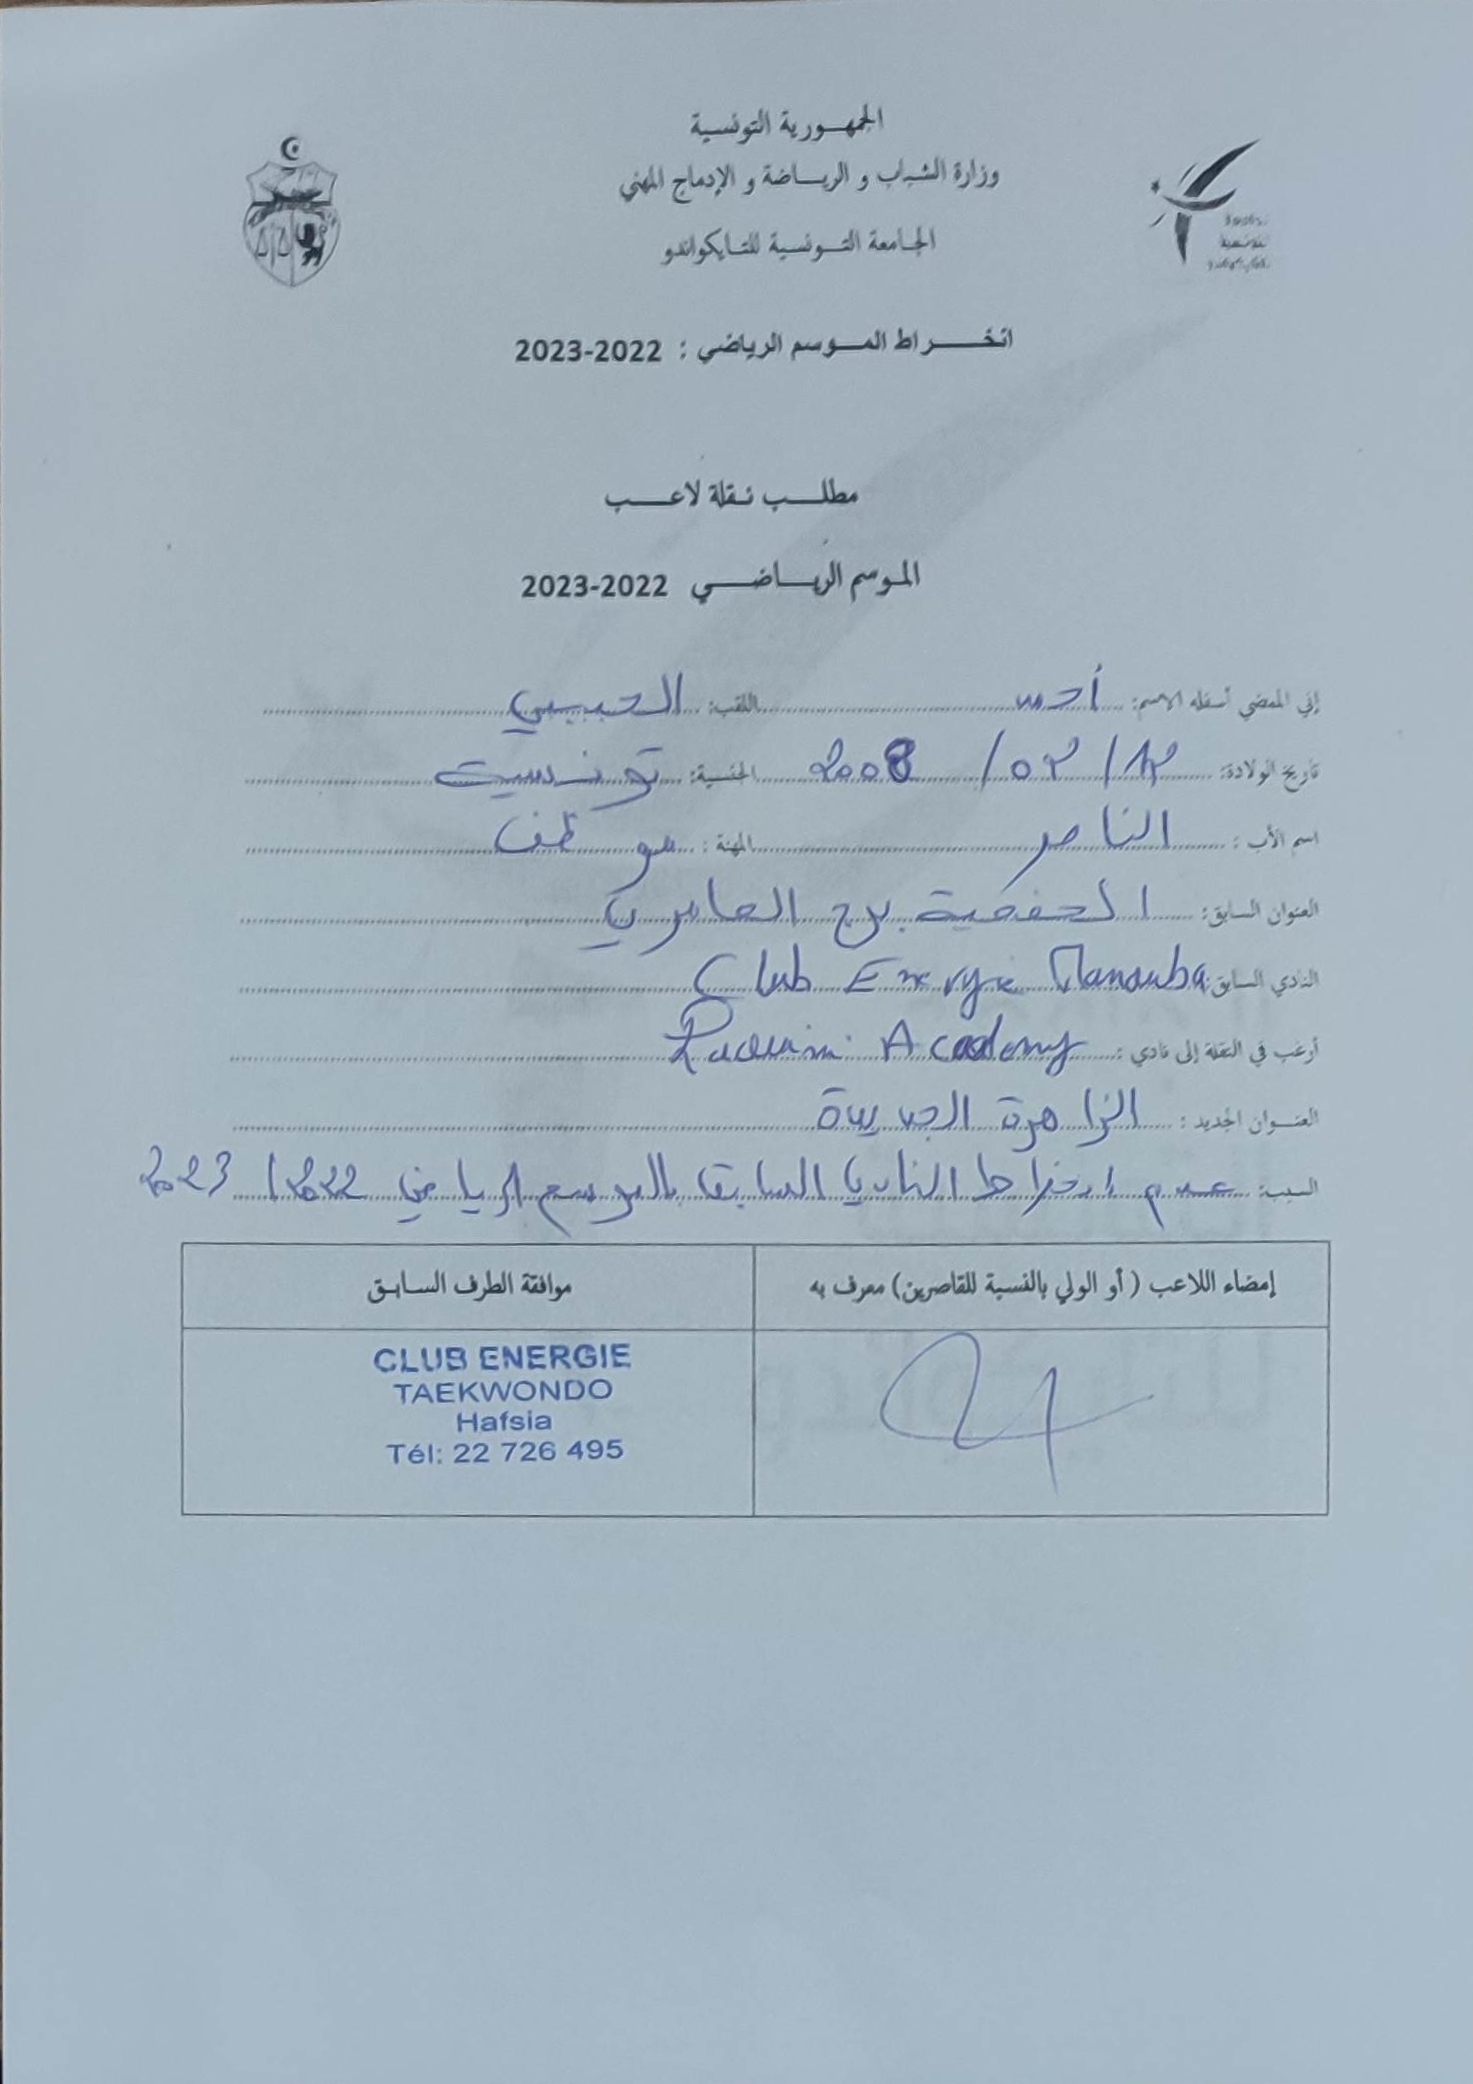 الجمهورية التونسية
وزارة الشباب و الرياضة و الإدماج المهني
الجامعة التونسية للتايكواندو
انخراط الموسم الرياضي : 2022-2023
مطلب نقلة لاعب
الموسم الرياضي 2022-2023
إني الممضي أسفله الاسم: أحمد اللقب: الحبيبي
تاريخ الولادة: 12/02/2008 الجنسية: تونسية
اسم الأب : الناصر المهنة : موظف
العنوان السابق: برج العامري
النادي السابق: Club Energie Manouba
أرغب في النقلة إلى نادي : Academy
العنوان الجديد : الزاهرة الجديدة
السبب: عدم إنخراط النادي السابق بالموسم الرياضي 2022/2023
إمضاء اللاعب ( أو الولي بالنسبة للقاصرين) معرف به
موافقة الطرف السابق
CLUB ENERGIE
TAEKWONDO
Hafsia
Tél: 22 726 495